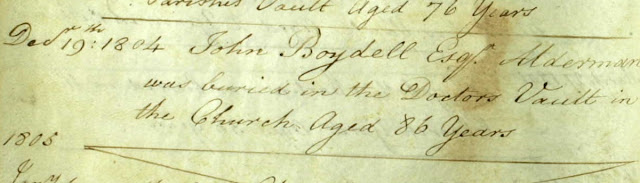 Parishs Vault Aged 76 Years
Decr. 19th: 1804 John Boydell Esqr. Alderman
was buried in the Doctors Vault in
the Church Aged 86 Years
1805